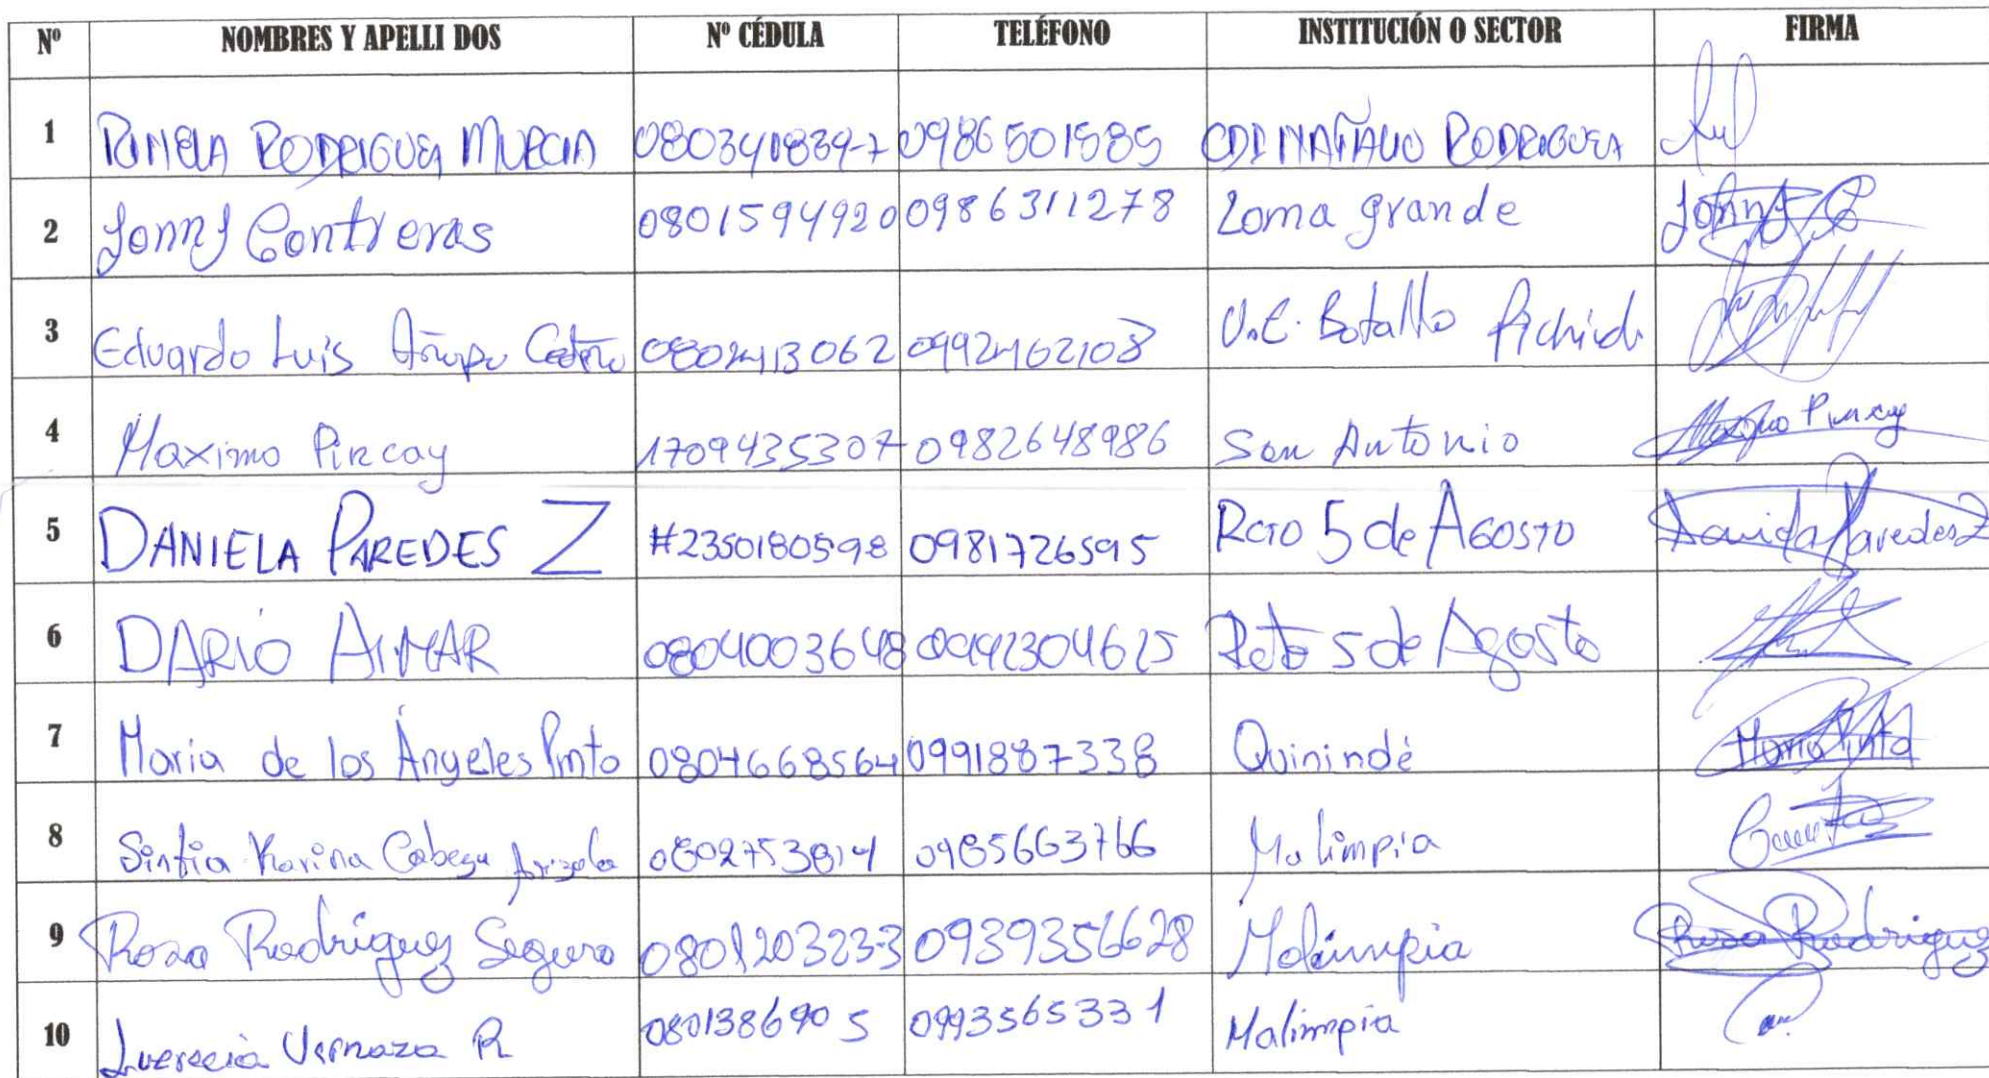 Nº NOMBRES Y APELLI DOS Nº CÉDULA TELÉFONO INSTITUCIÓN O SECTOR FIRMA
1 PAMELA RODRIGUEZ MURCIA 080341839-7 0986501585 CDI NATALIO RODRIGUEZ
2 Jonny Contreras 0801594920 0986311278 Loma grande Johnny C
3 Eduardo Luis Añapa 0802413062 0992462108 U.E. Batallo Pichinch
4 Maximo Pincay 1709435307 0982648986 San Antonio Maximo Pincay
5 DANIELA PAREDES Z #2350180598 0981726595 Rcto 5 de AGOSTO Daniela Paredes Z
6 DARIO AIMAR 0804003648 0992304625 Rcto 5 de Agosto
7 Maria de los Ángeles Pinto 0804668564 0991887338 Quinindé Maria Pinto
8 Sintia Karina Cabeza Arizala 0802753814 0985663766 Malimpia
9 Rosa Rodriguez Seguro 0801203233 0939356628 Malimpia Rosa Rodriguez
10 Lucrecia Vernaza R 0801386905 0993565331 Malimpia